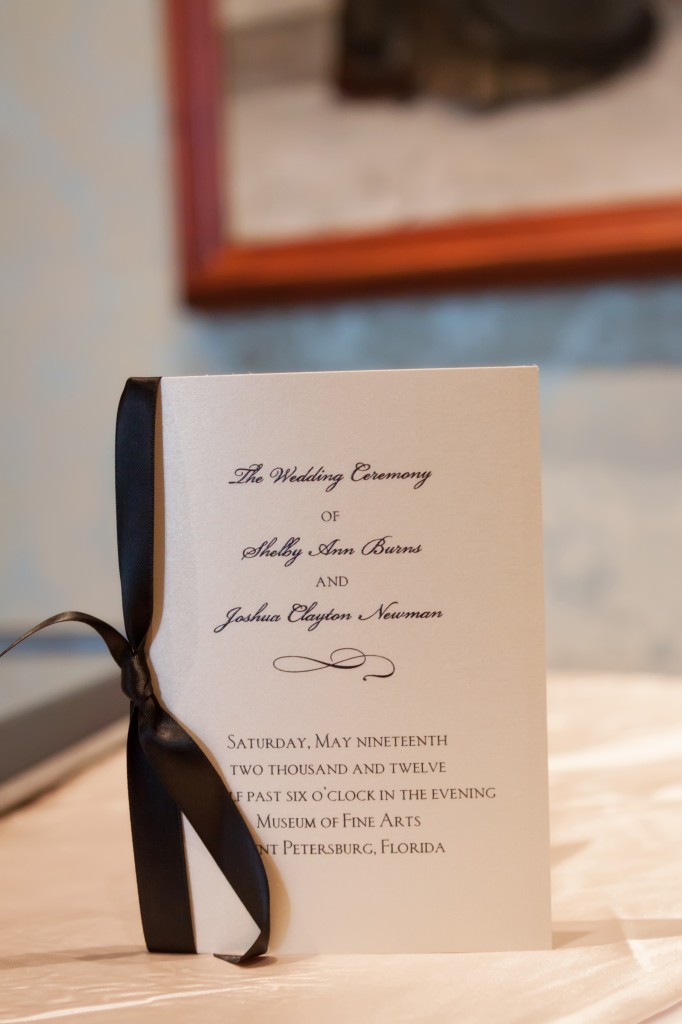 The Wedding Ceremony
OF
Shelby Ann Burns
AND
Joshua Clayton Newman
Saturday, May nineteenth
two thousand and twelve
past six o'clock in the evening
Museum of Fine Arts
Petersburg, Florida